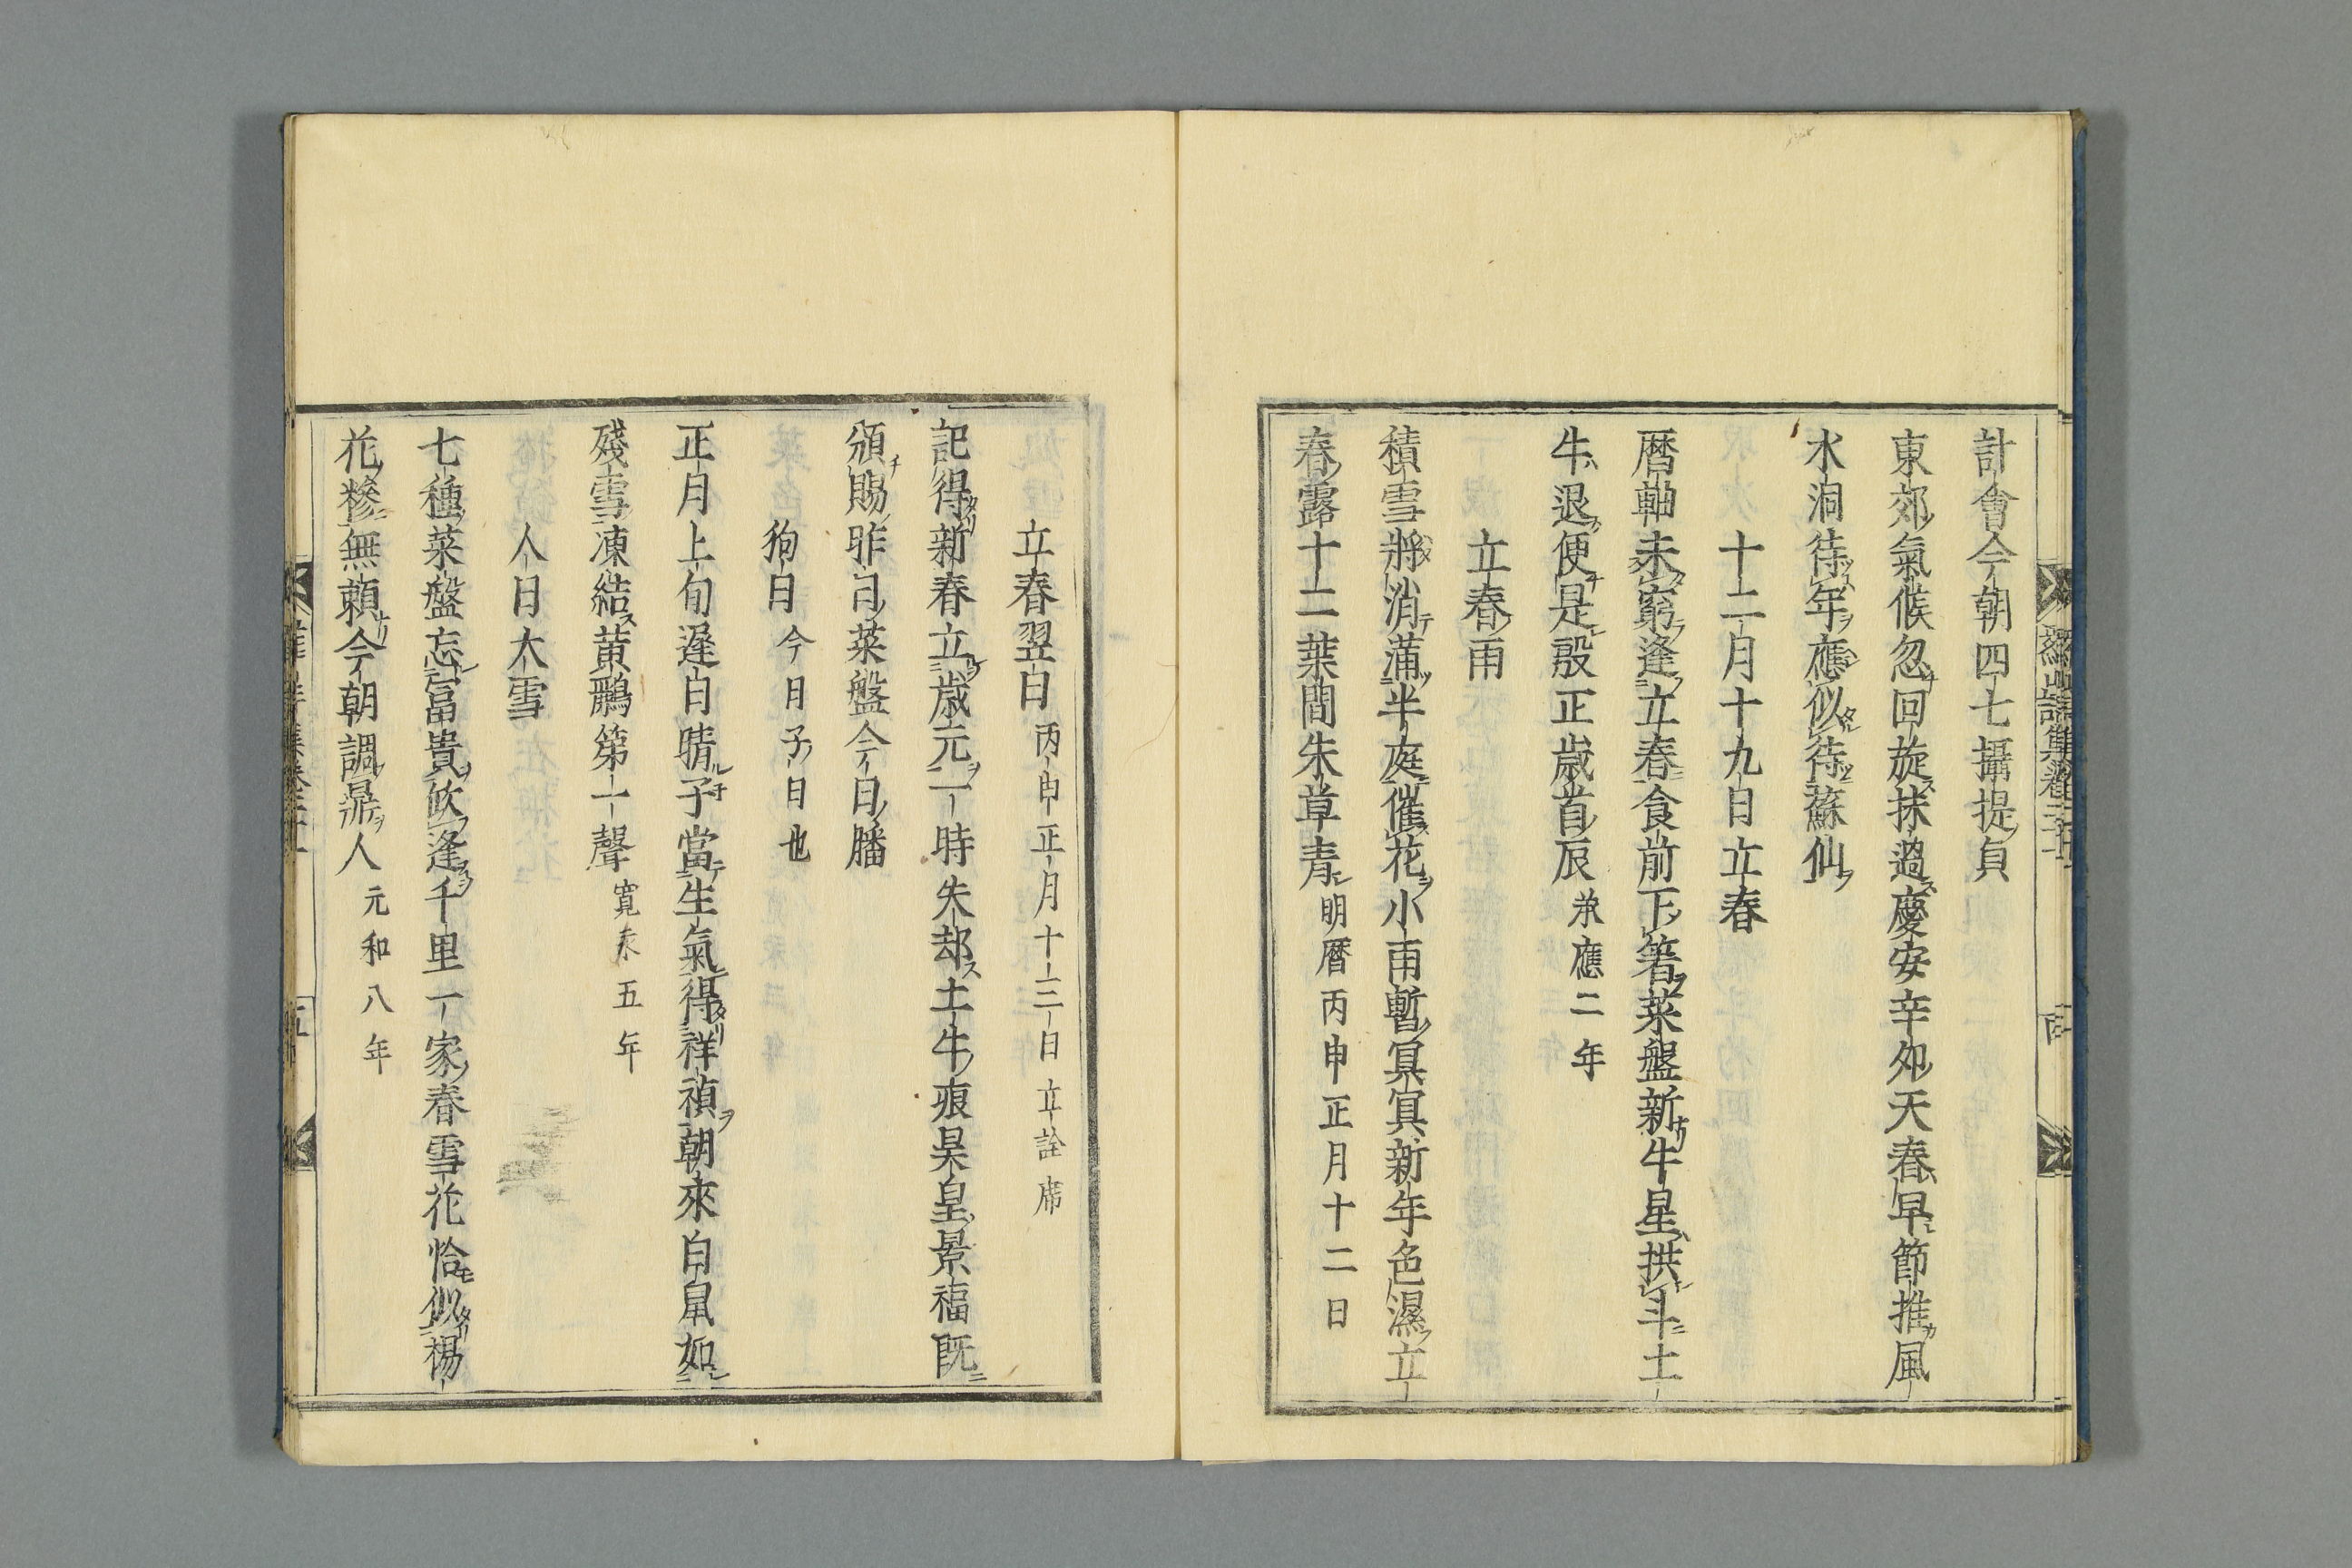 計會今朝四七攝提貞
東郊氣候忽回旋抹過慶安辛夘天春早節推風
水洞待年應似待蘇仙
十二月十九日立春
暦軸未窮逢立春食前下箸菜盤新牛星拱斗土
牛退便是殷正歳首辰 承應二年
立春雨
積雪將消蒲半庭催花小雨暫冥冥新年色濕立
春露十二葉間朱草青 明暦丙申正月十二日
立春翌日 丙申正月十三日立詮席
記得新春立歳元一時失却土牛痕昊皇景福既
頒賜昨日菜盤今日膰
狗日 今日子日也
正月上旬遲日晴子當生氣得祥禎朝來白鼠如
殘雪凍結黄鸝第一聲 寛永五年
人日大雪
七種菜盤忘富貴攸逢千里一家春雪花恰似楊
花糝無頼今朝調鼎人 元和八年